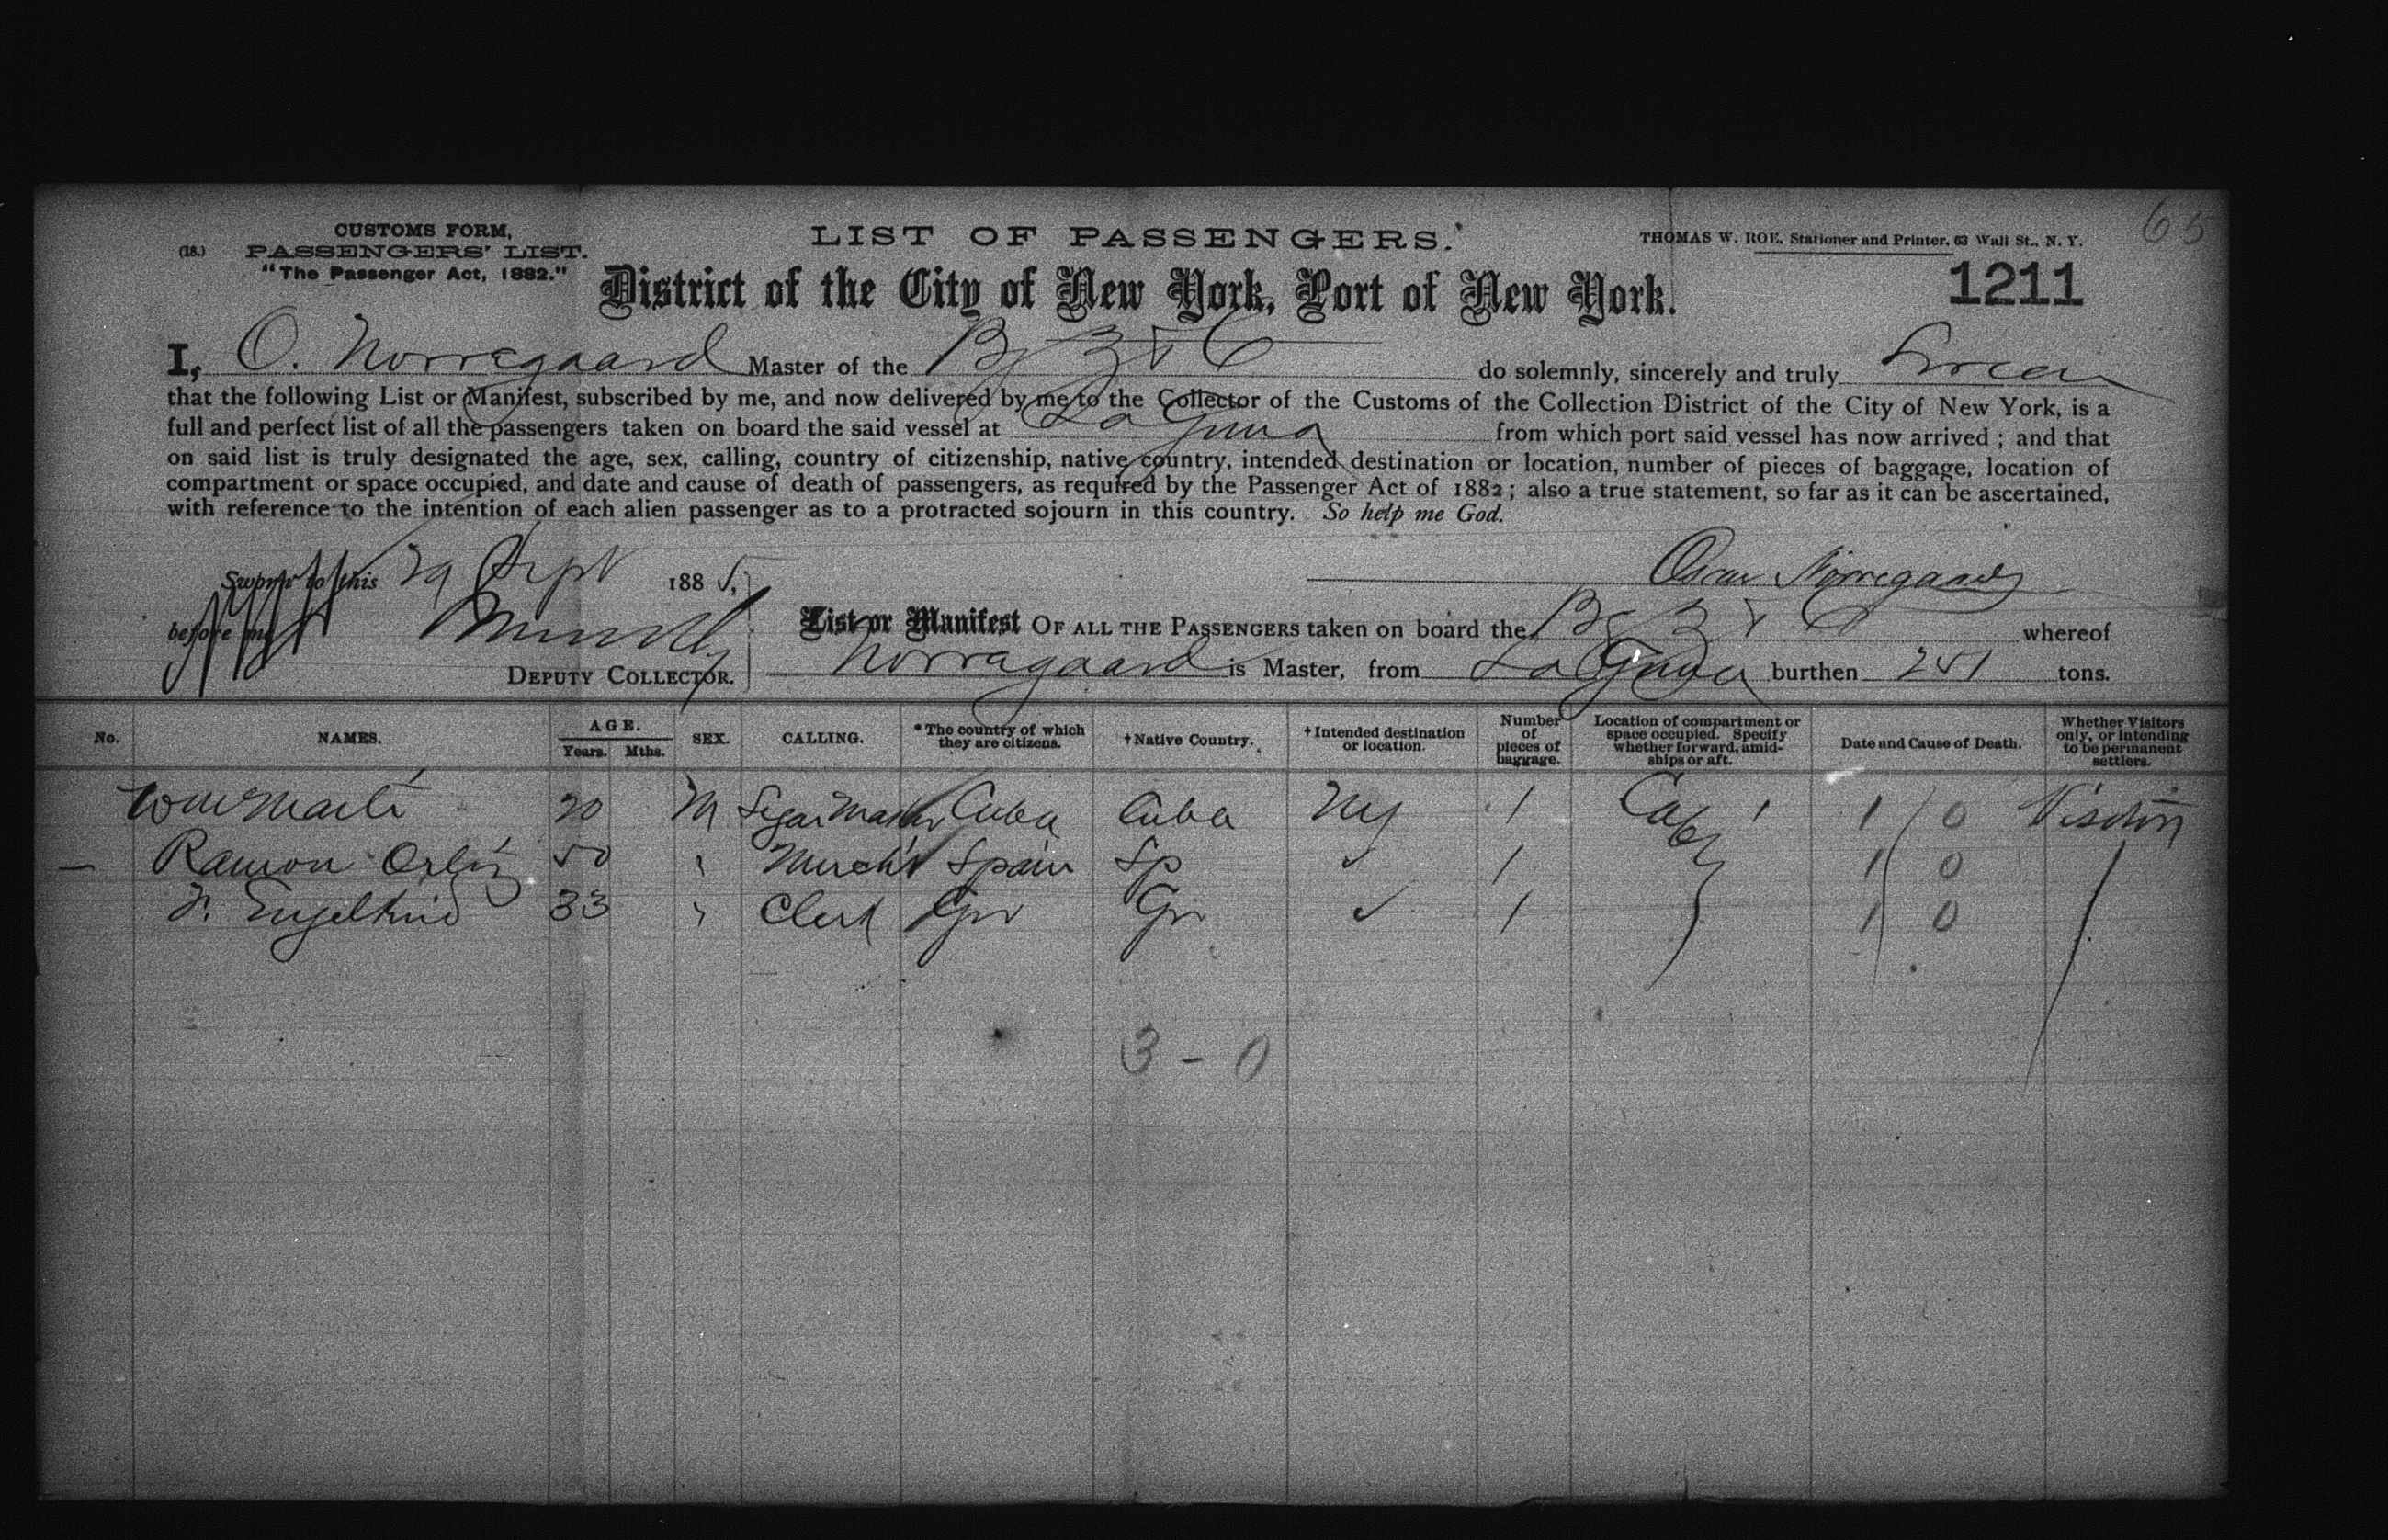 65
CUSTOMS FORM,
(18.) PASSENGERS' LIST.
"The Passenger Act, 1882."
LIST OF PASSENGERS.
THOMAS W. ROE, Stationer and Printer, 63 Wall St., N. Y.
1211
District of the City of New York, Port of New York.
I, O. Norregaard Master of the Bg B & C do solemnly, sincerely and truly Swear
that the following List or Manifest, subscribed by me, and now delivered by me to the Collector of the Customs of the Collection District of the City of New York, is a
full and perfect list of all the passengers taken on board the said vessel at Laguna from which port said vessel has now arrived ; and that
on said list is truly designated the age, sex, calling, country of citizenship, native country, intended destination or location, number of pieces of baggage, location of
compartment or space occupied, and date and cause of death of passengers, as required by the Passenger Act of 1882 ; also a true statement, so far as it can be ascertained,
with reference to the intention of each alien passenger as to a protracted sojourn in this country. So help me God.
Sworn to this 29 Sept 1885,
Oscar Norregaard
before me
DEPUTY COLLECTOR.
List or Manifest OF ALL THE PASSENGERS taken on board the Bg B & C whereof
Norragaard is Master, from Laguna burthen 251 tons.
No. NAMES. AGE. Years. Mths. SEX. CALLING. *The country of which they are citizens. †Native Country. †Intended destination or location. Number of pieces of baggage. Location of compartment or space occupied. Specify whether forward, amidships or aft. Date and Cause of Death. Whether Visitors only, or intending to be permanent settlers.
Wm Marti 20 M Segar Maker Cuba Cuba NY 1 1 0
— Ramon Ortiz 50 " Merch't Spain Sp ✓ 1 1 0
F. Engelkind 33 " Clerk Gr Gr ✓ 1 1 0
3 - 0